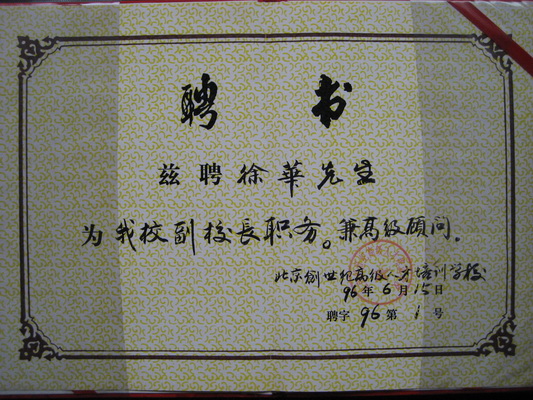 聘书
兹聘徐華先生
为我校副校長职务。兼高级顾问.
北京創世纪高级人才培训学校
96年6月15日
聘字96第1号